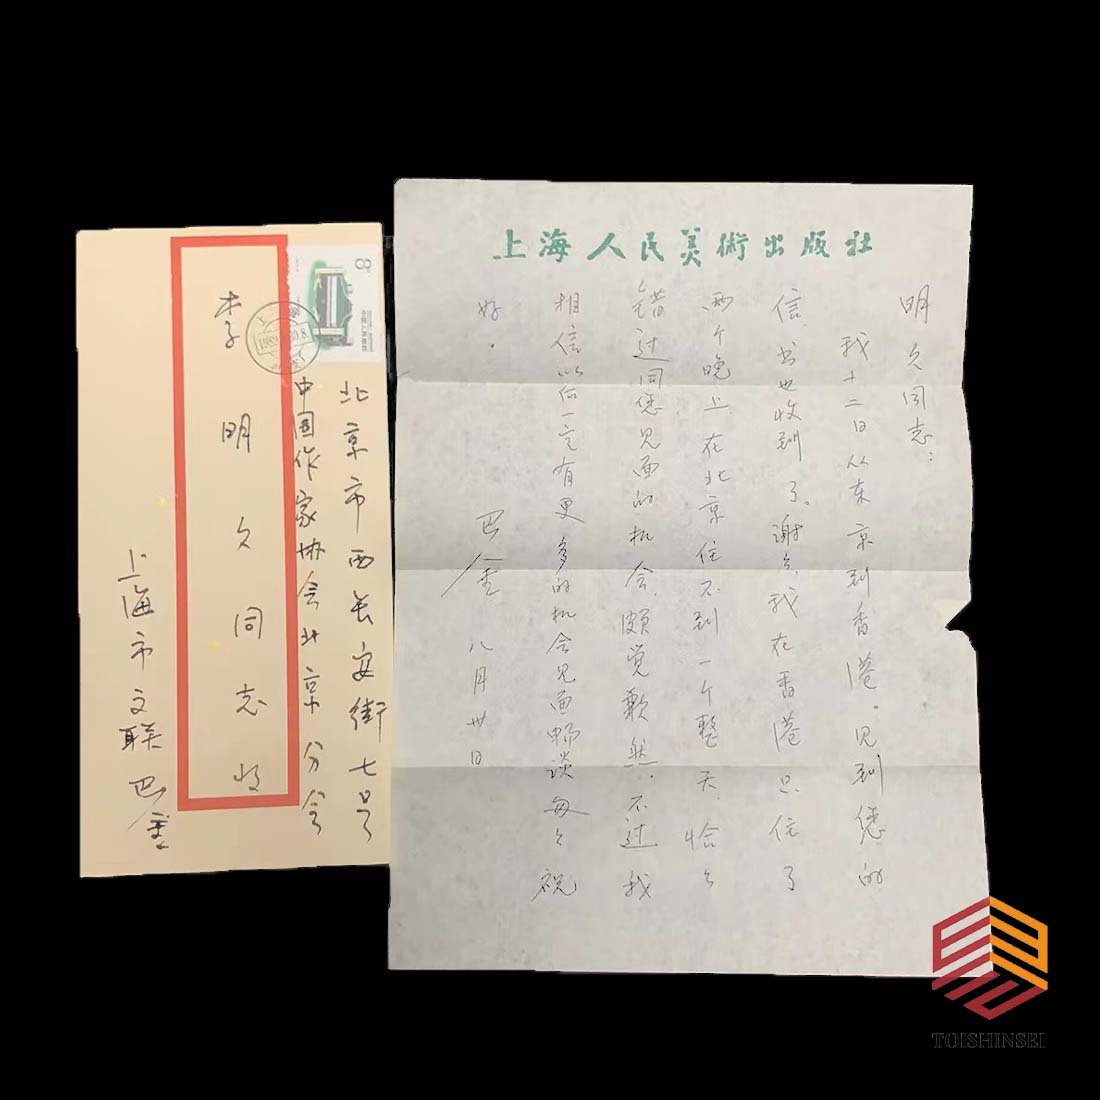 北京市西长安街七号
中国作家协会北京分会
李明久同志收
上海市文联 巴金
8
上海人民美術出版社
明久同志：
我十二日从东京到香港。见到您的
信,书也收到了。谢々,我在香港只住了
两个晚上,在北京住不到一个整天,恰々
错过同您见面的机会,颇觉歉然。不过我
相信以后一定有更多的机会见面畅谈 每々祝
好。
巴金 八月卅日
TOISHINSEI